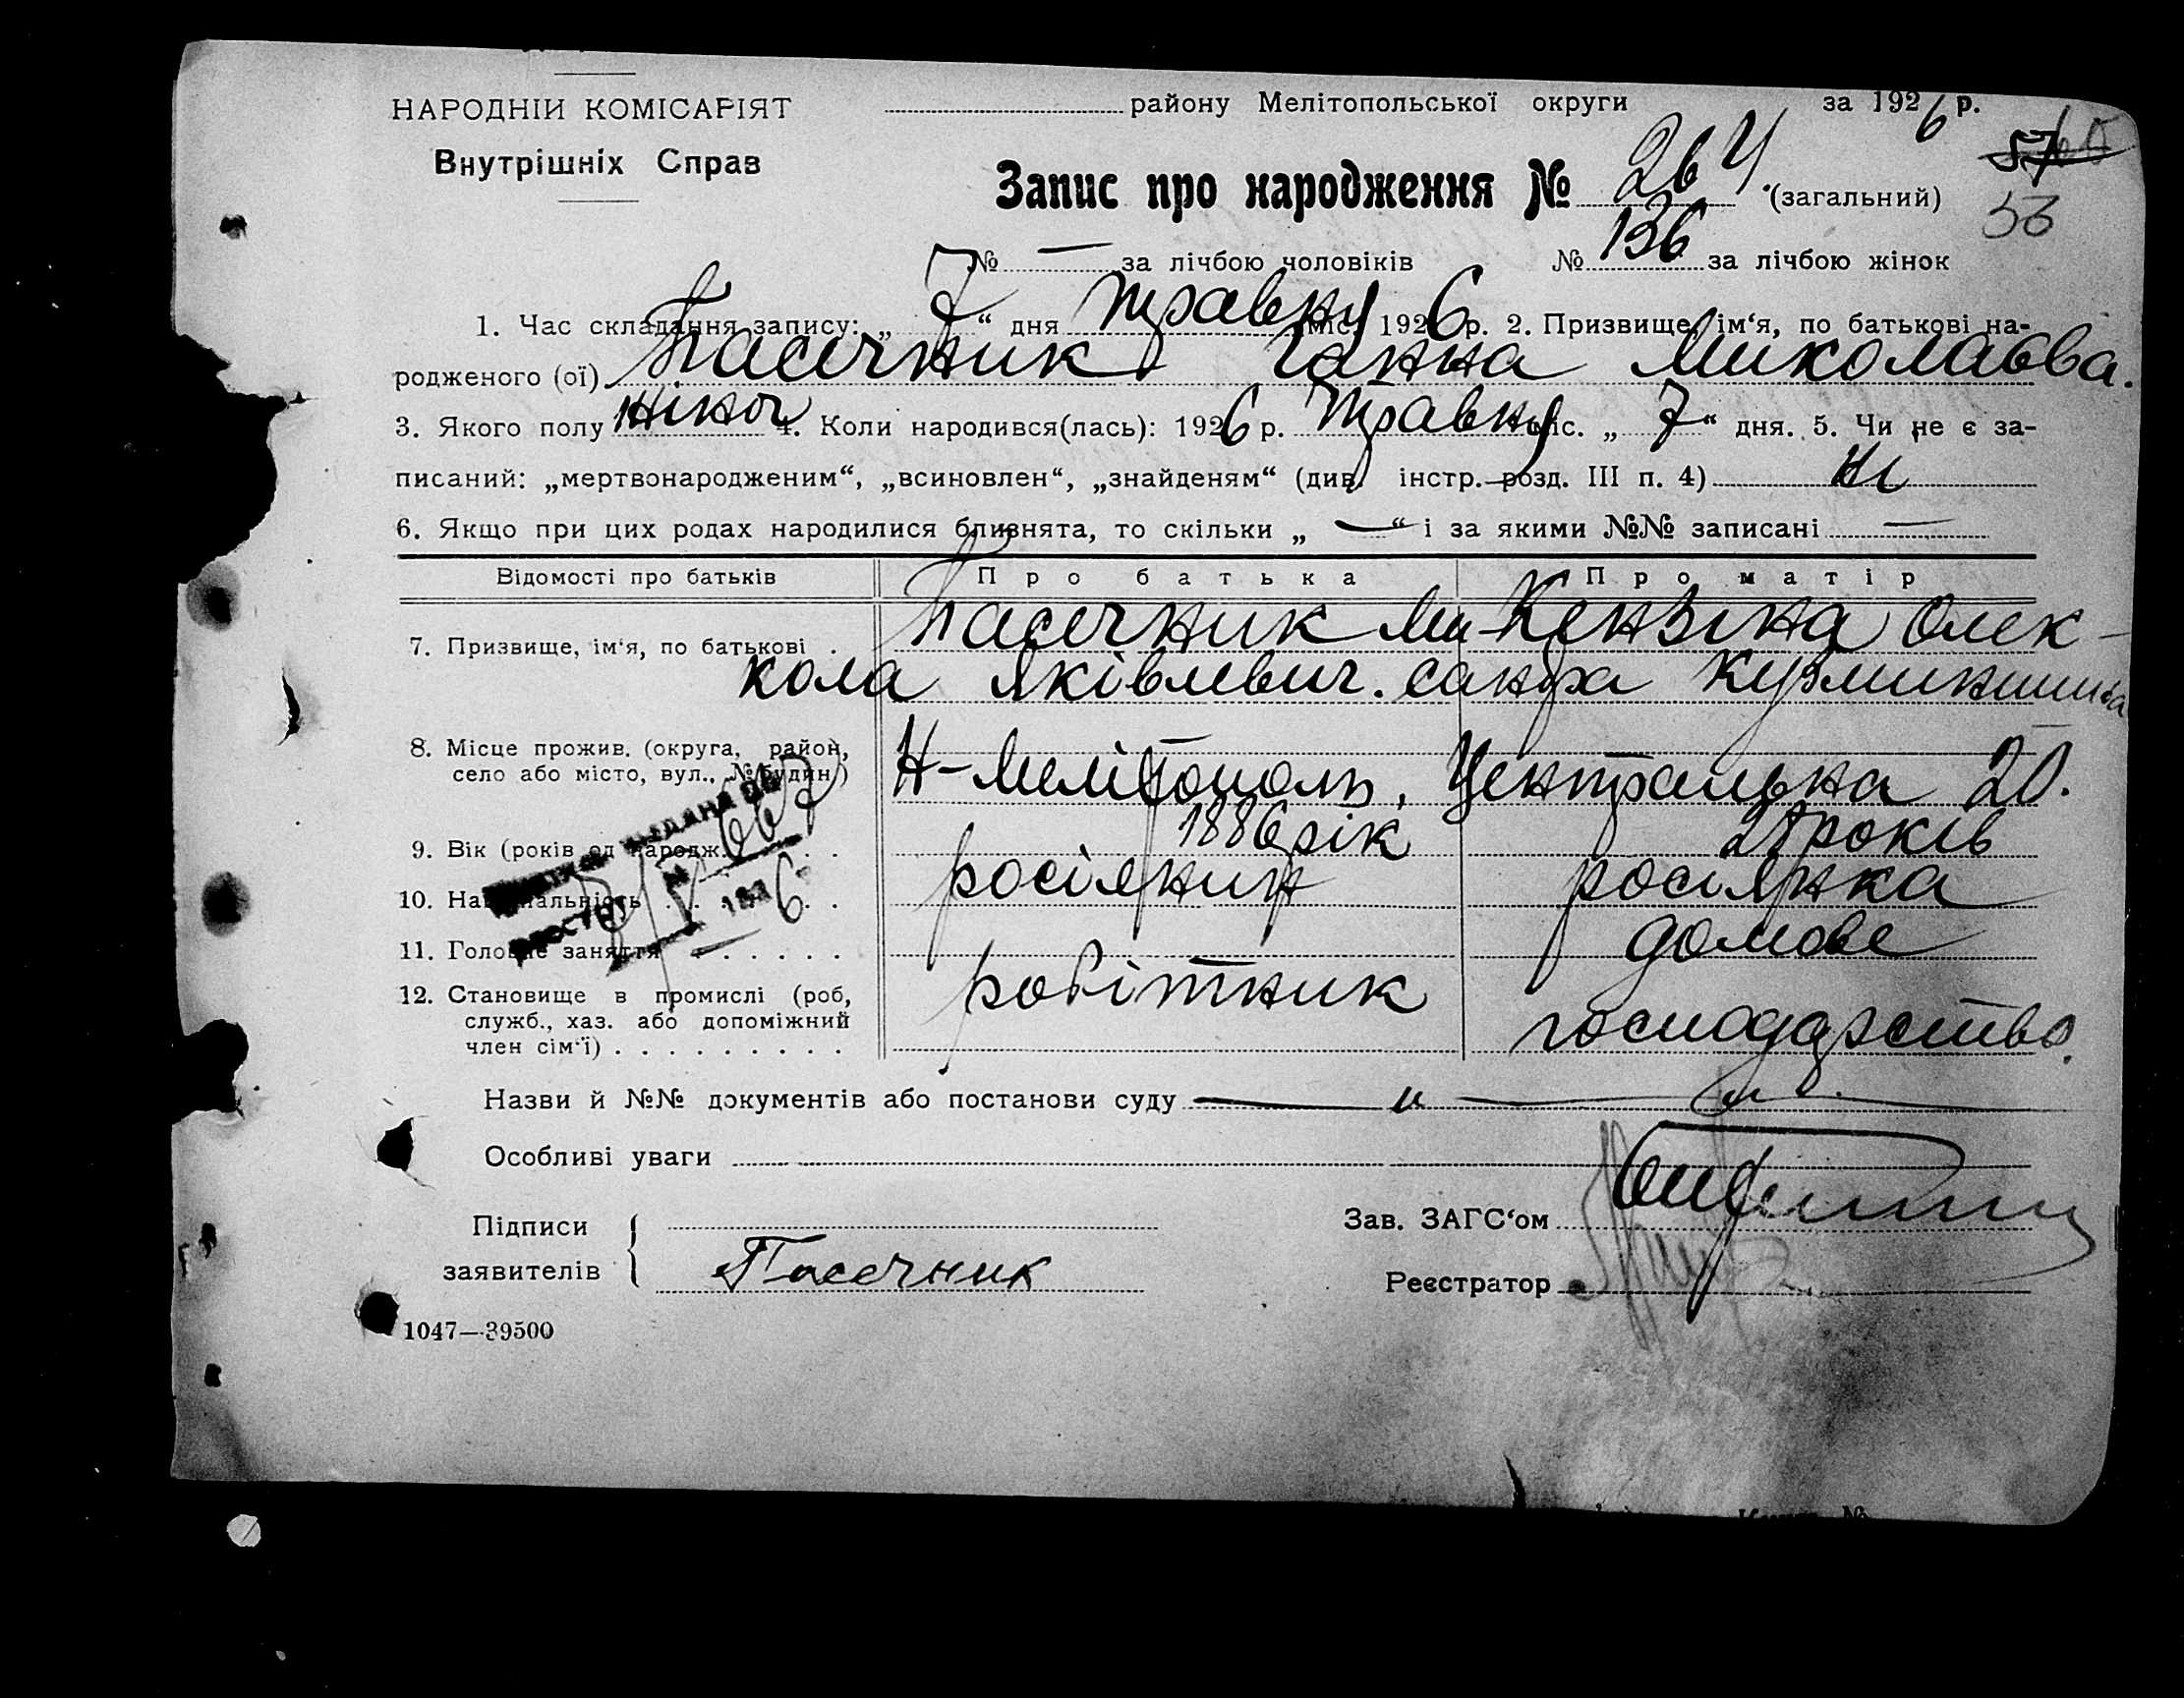 НАРОДНІЙ КОМІСАРІЯТ
Внутрішніх Справ
району Мелітопольської округи за 1926 р.
57
53
Запис про народження № 264 (загальний)
№ — за лічбою чоловіків № 136 за лічбою жінок
1. Час складання запису: „ 7 “ дня травня міс. 1926 р. 2. Призвище, ім‘я, по батькові на-
родженого (ої) Пасечник Ганна Миколаєва.
3. Якого полу жіноч 4. Коли народився(лась): 1926 р. травня міс. „ 7 “ дня. 5. Чи не є за-
писаний: „мертвонародженим“, „всиновлен“, „знайденям“ (див. інстр. розд. III п. 4) ні
6. Якщо при цих родах народилися близнята, то скільки „ — “ і за якими №№ записані —
Відомості про батьків Про батька Про матір
7. Призвище, ім‘я, по батькові . Пасечник Ми- Кензіна Олек-
кола Яківлевич. сандра
8. Місце прожив. (округа, район,
село або місто, вул., № будин.) Н-Мелітополь, Центральна 20.
9. Вік (років од народж. 1886 рік років
10. Національність росіянин росіянка
11. Головне заняття домове
12. Становище в промислі (роб, робітник господарство.
служб., хаз. або допоміжний
член сім‘ї)
видана
№ 667
1926
Назви й №№ документів або постанови суду — „ —
Особливі уваги
Підписи Зав. ЗАГС‘ом
заявителів Пасечник Реєстратор
1047—39500